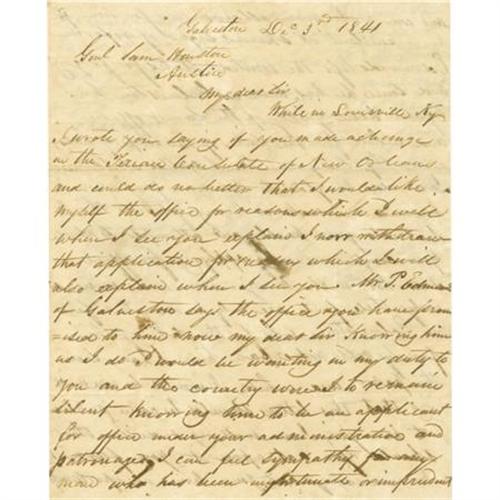 Galveston Dec 3rd 1841
Genl Sam Houston
Austin
My dear Sir
While in Louisville Ky
I wrote you saying if you made a change
in the Texian Consulate of New Orleans
and could do no better that I would like
myself the office for reasons which I will
when I see you explain I now withdraw
that application for reasons which I will
also explain when I see you Mr P. Edmunds
of Galveston says the office you have prom
=ised to him now my dear Sir Knowing him
as I do I would be wanting in my duty to
you and the country were I to remain
silent Knowing him to be an applicant
for office under your administration and
patronage I can feel sympathy for any
man who has been unfortunate or imprudent